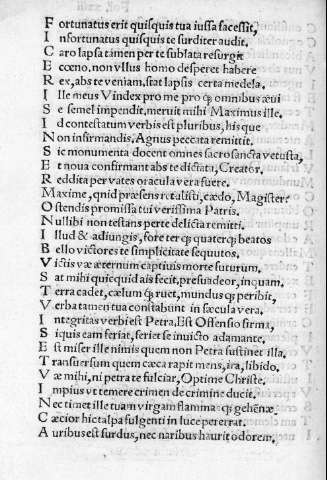 F ortunatus erit quisquis tua iussa facessit,
I nfortunatus quisquis te surditer audit.
C aro lapsa tamen per te sublata resurgit
E cceno, non vllus homo desperet habere
R ex, abs te veniam, stat lapsis certa medela.
I lle meus Vindex pro me proq̃ omnibus æui
S e semel impendit, meruit mihi Maximus ille.
I d contestatum verbis est pluribus, hisque
N on infirmandis. Agnus peccata remittit.
S ic monumenta docent omnes sacrosancta vetusta,
E t noua confirmant abs te dictata, Creator.
R eddita per vates oracula vera fuere.
M axime, quid præsens retulisti, cædo, Magister?
O stendis promissa tui verissima Patris.
N ullibi non testans per te delicta remitti.
I llud & adiungis, fore terq̃ quaterq̃ beatos
B ello victores te simplicitate sequutos.
V ictis væ æternum captiuis morte futurum.
S at mihi quicquid ais fecit, presuadeor, inquam.
T erra cadet, cælumq̃ ruet, mundusq̃ peribit,
V erba tamen tua constabunt in sæcula vera.
I ntegritas verbi est Petra, Est Offensio firma,
S i quis eam feriat, feriet se inuicto adamante.
E st miser ille nimis quem non Petra sustinet illa.
T ransuersum quem cæca rapit mens, ira, libido.
V æ mihi, ni petra te fulciar, Optime Christe.
I mpius vt temere crimen de crimine ducit.
N ec timet ille tuam virgam flammaq̃ gehēnæ.
C æcior hic talpa fulgenti in luce pererrat.
A uribus est surdus, nec naribus haurit odorem.